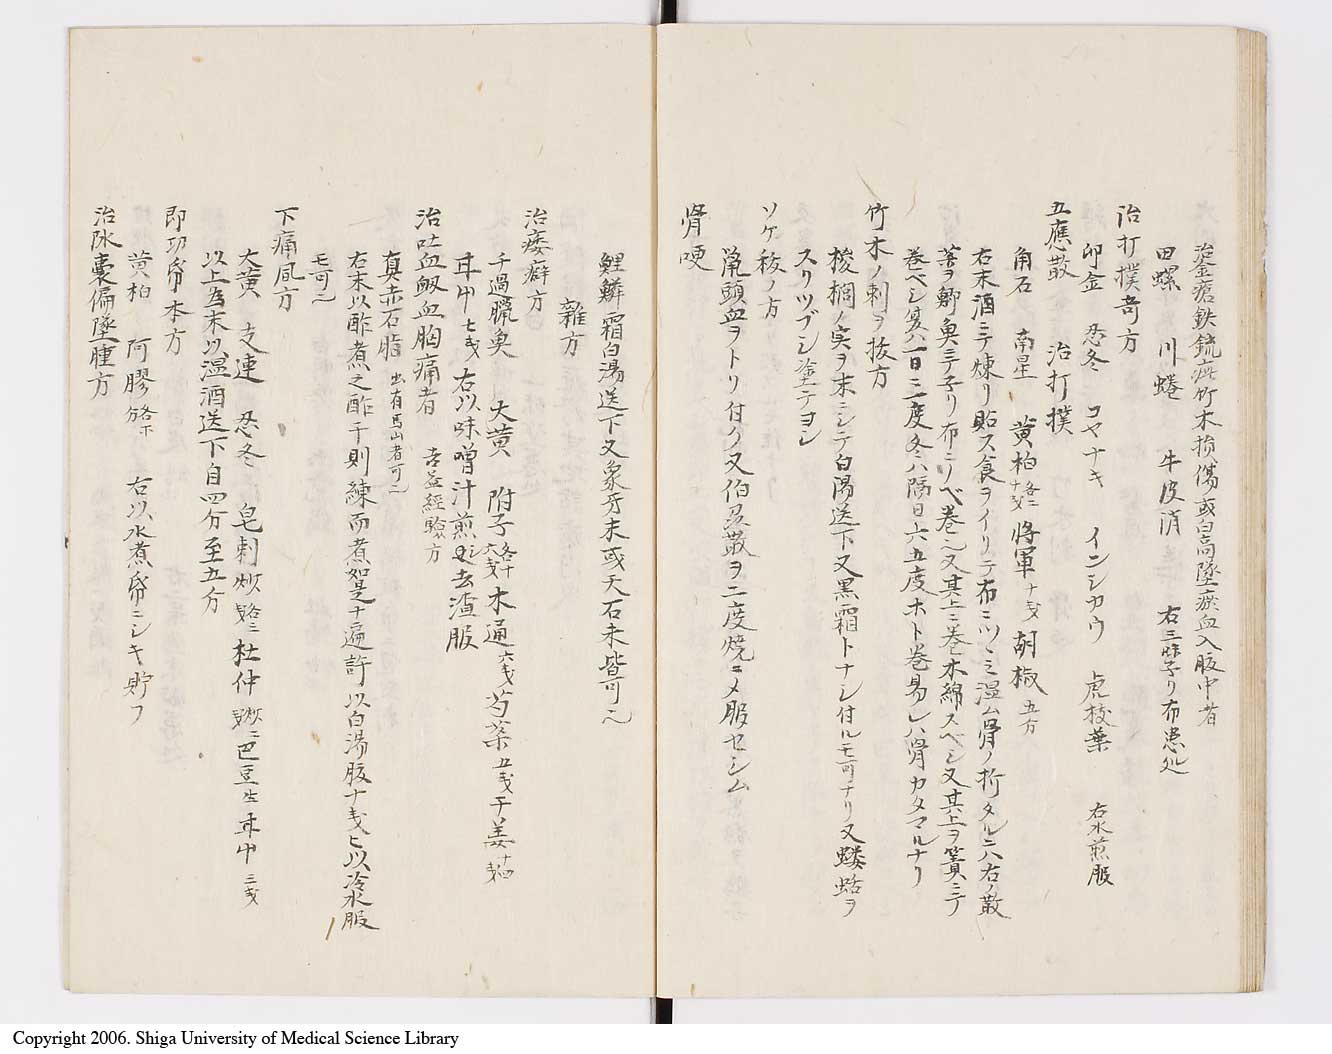 治金瘡鉄銃疵竹木損傷或自高墜瘀血入腹中者
田螺 川蜷 牛皮消 右三味子リ布患処
治打撲奇方
卯金 忍冬 コヤナキ インシカウ 虎杖葉 右水煎服
五應散 治打撲
角石 南星 黄柏各二十戔 将軍十戔 胡椒五方
右末酒ニテ煉リ貼ス食ヲイリテ布ニツヽミ温ム骨ノ折タルニハ右ノ散
ヲ鯽魚ニテ子リ布ニノベ巻ヘ又其上ニ巻木綿スベシ又其上ヲ簀ニテ
巻ベシ夏ハ一日二度冬ハ隔日六五度ホト巻易レハ骨カタマルナリ
竹木ノ刺ヲ抜方
椶櫚ノ実ヲ末ニシテ白湯送下又黒霜トナシ付ルモ可ナリ又螻蛄ヲ
スリツブシ塗テヨシ
ソケ抜ノ方
鼠頭血ヲトリ付ク又伯州散ヲ二度焼ニメ服セシム
骨哽
鯉鱗霜白湯送下又象牙末或天石末皆可也
雜方
治痿癖方
千過臘臭 大黄 附子各十六戔 木通六戔 芍薬五戔 干姜十匁
甘中七戔 右以味噌汁煎 去渣服
治吐血衂血胸痛者 吉益經驗方
真赤石脂 出有馬山者可也
右末以酢煮之酢干則練而煮如是十遍許以白湯服十戔匕以冷水服
モ可也
下痛風方
大黄 支連 忍冬 皂刺炒各二戔 杜仲炒二戔 巴豆生 甘中三戔
以上為末以温酒送下自四分至五分
即功帋本方
黄柏 阿膠各等分 右以水煮帋ニシキ貯フ
治陰嚢偏墜腫方
Copyright 2006. Shiga University of Medical Science Library